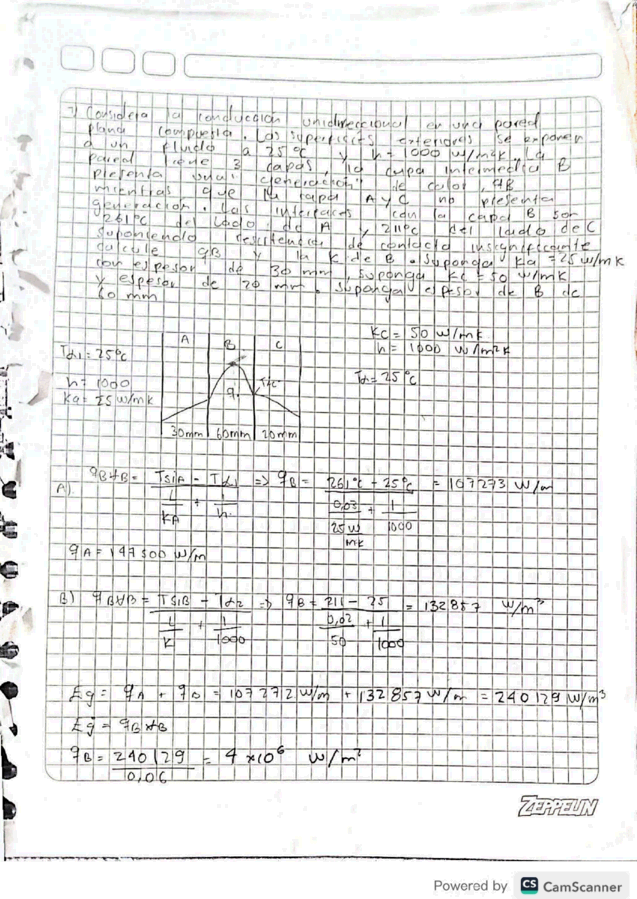 7) Considera la conducción unidireccional en una pared
plana compuesta. Las superficies exteriores se exponen
a un fluido a 25°C y h=1000 w/m²k. La
pared tiene 3 capas, la capa intermedia B
presenta una "generación" de calor, qB
mientras que la capa A y C no presenta
generación. Las interfaces con la capa B son
261°C del lado de A y 211°C del lado de C
suponiendo resistencia de contacto insignificante
calcule qB y la K de B. Suponga Ka = 25 w/mk
con espesor de 30 mm, suponga Kc = 50 w/mk
y espesor de 20 mm. Supongay espesor de B de
60 mm
Kc = 50 w/mk
h = 1000 w/m²k
Tα = 25°C
Tα1 = 25°C
h = 1000
Ka = 25 w/mk
A B C
q.
30mm 60mm 20mm
A). qB※B = TS1A - Tα1 / L/KA + 1/h. => qB = 261°c - 25°c / 0,03/25 w/mk + 1/1000 = 107273 W/m
qA = 147500 w/m
B) qB※B = TS1B - Tα2 / L/K + 1/1000 => qB = 211 - 25 / 0,02/50 + 1/1000 = 132857 W/m³
Eg = qA + qB = 107272 w/m + 132857 w/m = 240129 w/m³
Eg = qB※B
qB = 240129 / 0,06 = 4*10⁶ w/m²
ZEPPELIN
Powered by CS CamScanner